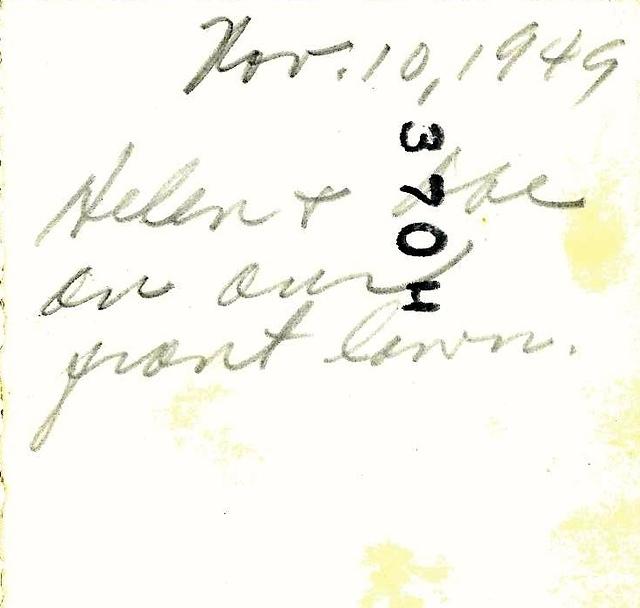 Nov. 10, 1949
Helen +
on our
front lawn.
370H